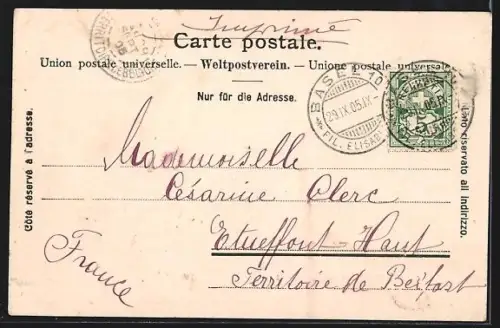 Imprimé
Carte postale.
Union postale universelle. — Weltpostverein. — Unione postale universale
Nur für die Adresse.
BASEL 10
29.IX.05.IX
FIL. ELISAB
Côté réservé à l'adresse.
Lato riservato all indirizzo.
Mademoiselle
Césarine Clerc
Etueffont=Haut
Territoire de Belfast
France